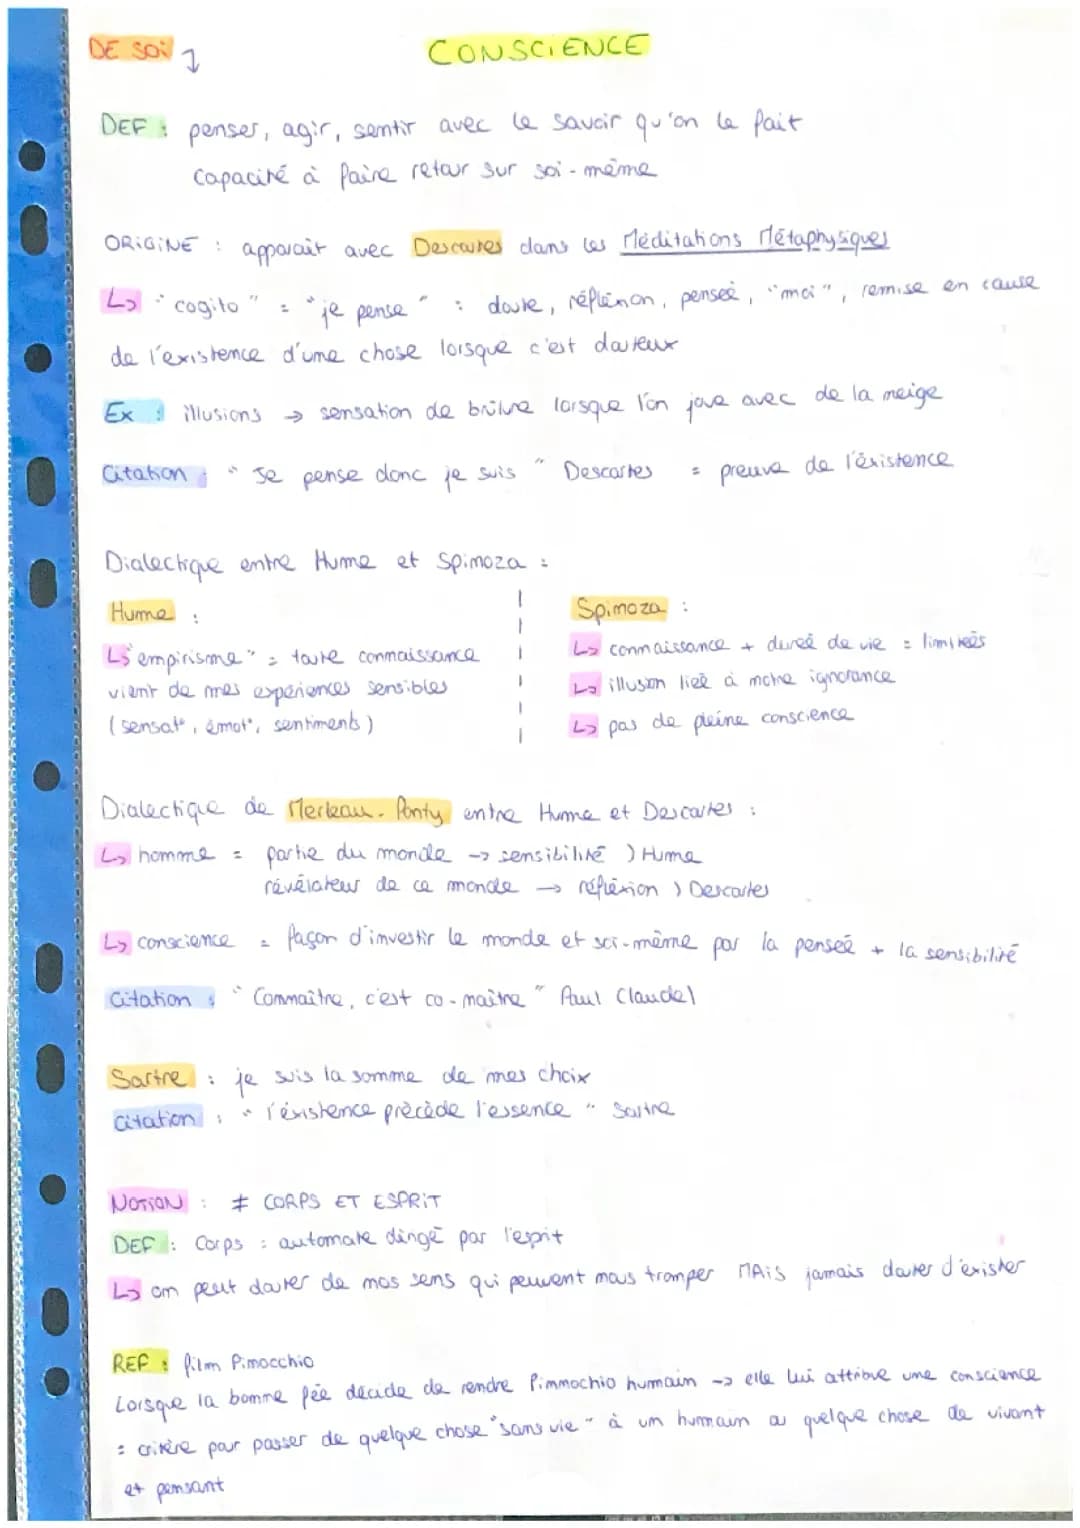 DE SOI ↴ CONSCIENCE
DEF : penser, agir, sentir avec le savoir qu'on le fait
capacité à faire retour sur soi-même
ORIGINE : apparaît avec Descartes dans les Méditations Métaphysiques
↳ "cogito" = "je pense" : doute, réflexion, pensée, "moi", remise en cause
de l'existence d'une chose lorsque c'est douteux
Ex : illusions → sensation de brûlure lorsque l'on joue avec de la neige
Citation : "Je pense donc je suis" Descartes = preuve de l'existence
Dialectique entre Hume et Spinoza :
Hume :
↳ "empirisme" = toute connaissance
vient de mes expériences sensibles
(sensat°, émot°, sentiments)
Spinoza :
↳ connaissance + durée de vie = limitées
↳ illusion liée à notre ignorance
↳ pas de pleine conscience
Dialectique de Merleau-Ponty entre Hume et Descartes :
↳ homme = partie du monde → sensibilité ) Hume
révélateur de ce monde → réflexion ) Descartes
↳ conscience = façon d'investir le monde et soi-même par la pensée + la sensibilité
Citation : "Connaître, c'est co-naître" Paul Claudel
Sartre : je suis la somme de mes choix
Citation : "l'existence précède l'essence" Sartre
NOTION : ≠ CORPS ET ESPRIT
DEF : Corps : automate dirigé par l'esprit
↳ on peut douter de nos sens qui peuvent nous tromper MAIS jamais douter d'exister
REF : film Pinocchio
Lorsque la bonne fée décide de rendre Pinnochio humain → elle lui attribue une conscience
= critère pour passer de quelque chose "sans vie" à un humain ou quelque chose de vivant
et pensant